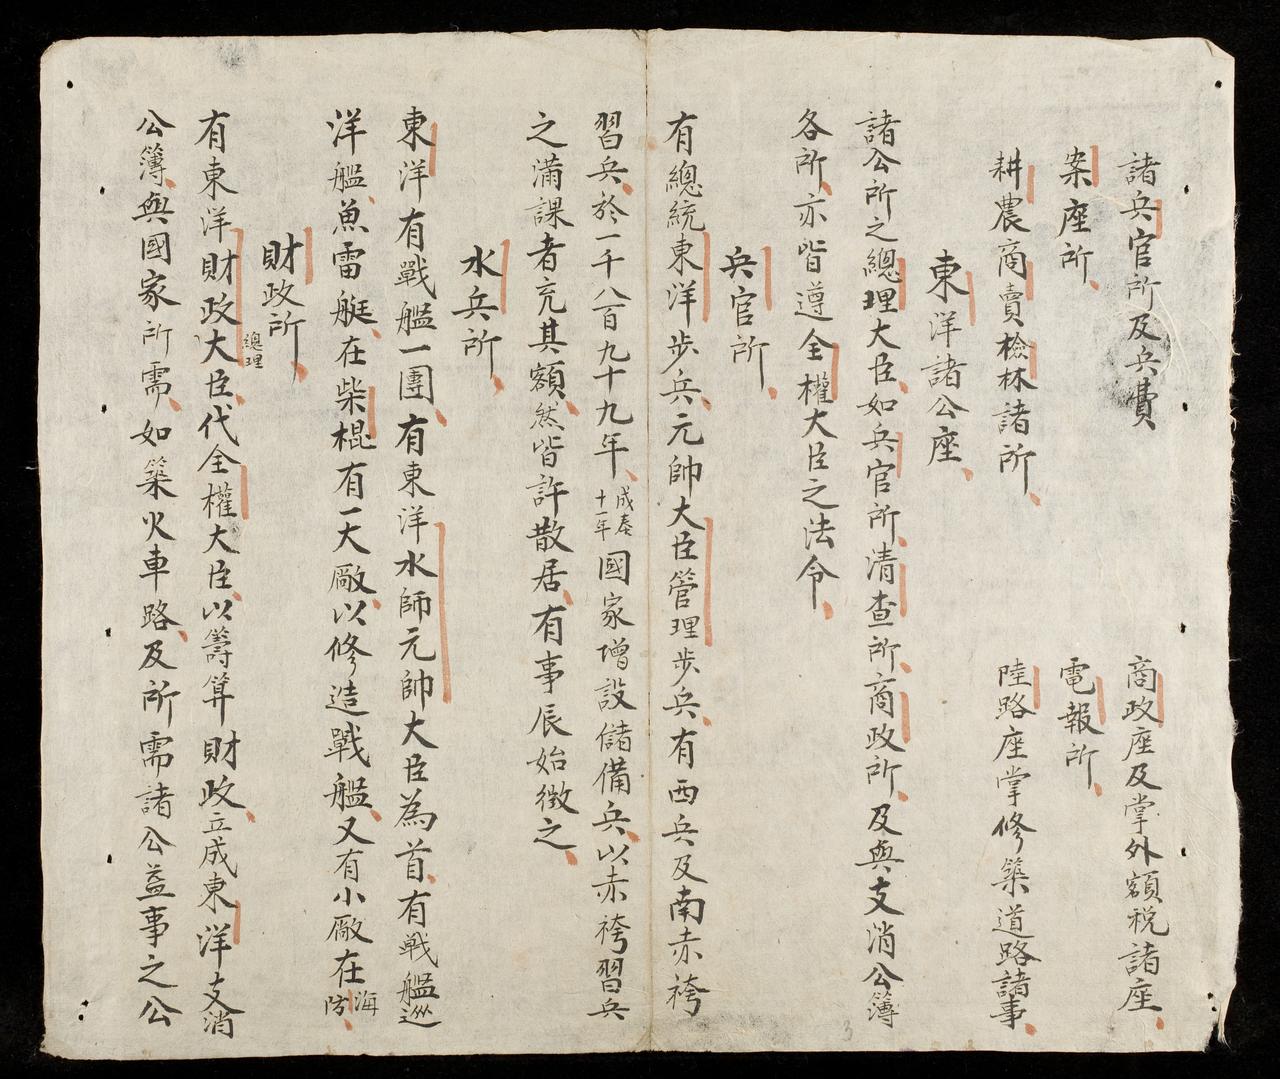 諸兵官所及兵費
商政座及掌外額稅諸座
案座所
電報所
耕農商賣檢林諸所
陸路座掌修築道路諸事
東洋諸公座
諸公所之總理大臣如兵官所清查所商政所及與支消公簿
各所亦皆遵全權大臣之法令
兵官所
有總統東洋步兵元帥大臣管理步兵有西兵及南赤袴
習兵於一千八百九十九年成泰十一年國家增設儲備兵以赤袴習兵
之滿課者充其額然皆許散居有事辰始徵之
水兵所
東洋有戰艦一團有東洋水師元帥大臣為首有戰艦巡
洋艦魚雷艇在柴棍有一大廠以修造戰艦又有小廠在海防
財政所
有東洋財政總理大臣代全權大臣以籌算財政立成東洋支消
公簿與國家所需如築火車路及所需諸公益事之公